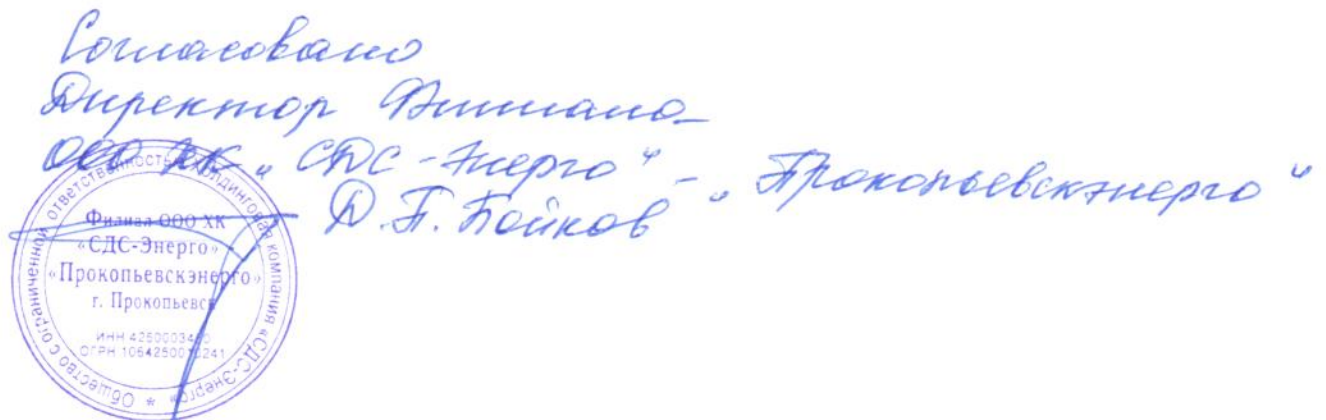 Согласовано
Директор Филиала
ООО ХК „СДС-Энерго" - „Прокопьевскэнерго"
Д.П. Бойков
Общество с ограниченной ответственностью Холдинговая компания «СДС-Энерго» *
Филиал ООО ХК
«СДС-Энерго»
«Прокопьевскэнерго»
г. Прокопьевск
ИНН
ОГРН